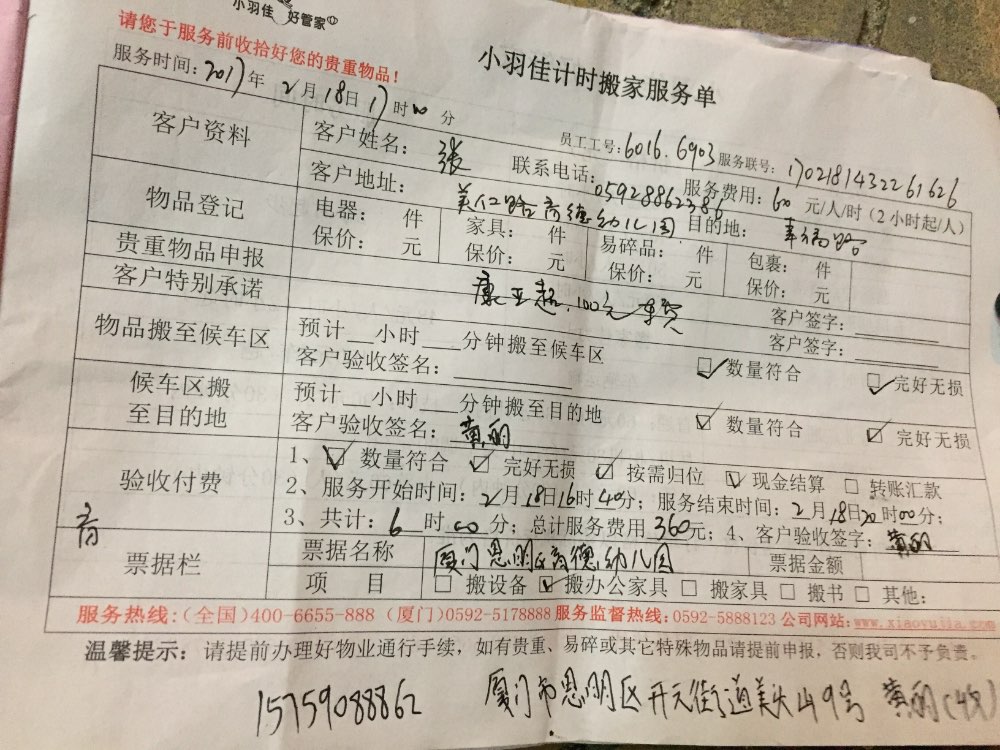 小羽佳 好管家
请您于服务前收拾好您的贵重物品！
小羽佳计时搬家服务单
服务时间：2017年2月18日17时00分
员工工号：6016.6903 服务联号：170218143226 1626
客户资料 客户姓名：张 联系电话：05928862386 服务费用：60元/人/时（2小时起/人）
客户地址：美仁路育德幼儿园 目的地：
物品登记 电器： 件 家具： 件 易碎品： 件 包裹： 件
贵重物品申报 保价： 元 保价： 元 保价： 元 保价： 元
客户特别承诺 100元 客户签字：
客户签字：
物品搬至候车区 预计__小时___分钟搬至候车区
客户验收签名： 数量符合 完好无损
候车区搬至目的地 预计__小时___分钟搬至目的地
客户验收签名：黄丽 数量符合 完好无损
验收付费 1、数量符合 完好无损 按需归位 现金结算 转账汇款
2、服务开始时间：2月18日16时40分；服务结束时间：2月18日20时00分；
3、共计：6时00分；总计服务费用360元；4、客户验收签字：黄丽
育
票据栏 票据名称 厦门思明区育德幼儿园 票据金额
项 目 搬设备 搬办公家具 搬家具 搬书 其他：
服务热线：(全国)400-6655-888 (厦门)0592-5178888 服务监督热线：0592-5888123 公司网站：www.xiaoyujia.com
温馨提示：请提前办理好物业通行手续，如有贵重、易碎或其它特殊物品请提前申报，否则我司不予负责。
15759088862 厦门市思明区开元街道美头山9号 黄丽(收)